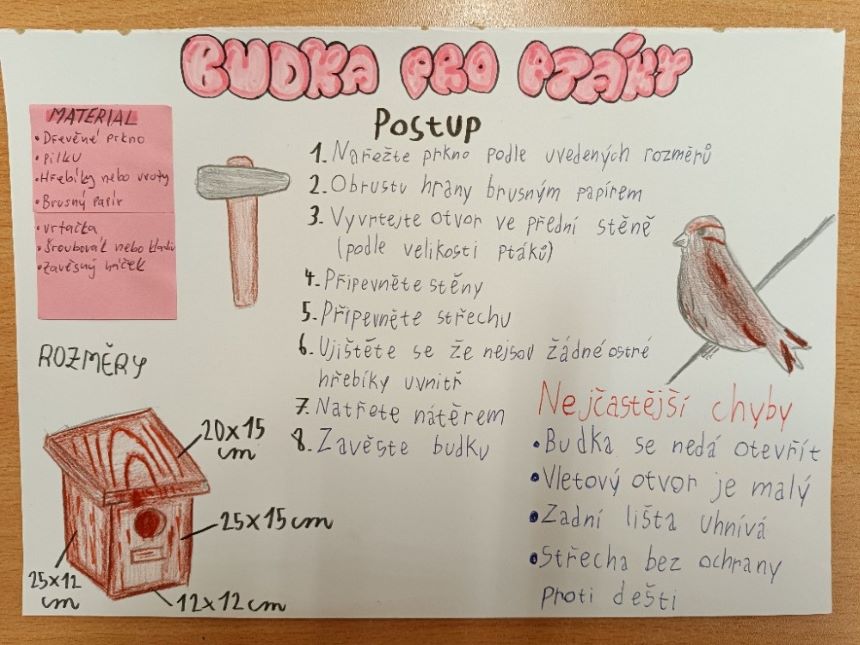 BUDKA PRO PTÁKY
MATERIAL
• Dřevěné prkno
• Pilku
• Hřebíky nebo vruty
• Brusný papír
• vrtačka
• Šroubovák nebo kladiv
• Závěsný háček
Postup
1. Nařežte prkno podle uvedených rozměrů
2. Obrustu hrany brusným papírem
3. Vyvrtejte otvor ve přední stěně
(podle velikosti ptáků)
4. Připevněte stěny
5. Připevněte střechu
6. Ujištěte se že nejsou žádné ostré
hřebíky uvnitř
7. Natřete nátěrem
8. Zavěste budku
ROZMĚRY
20x15
cm
25x15 cm
25x12
cm
12x12 cm
Nejčastější chyby
• Budka se nedá otevřít
• Vletový otvor je malý
• Zadní lišta uhnívá
• Střecha bez ochrany
proti dešti